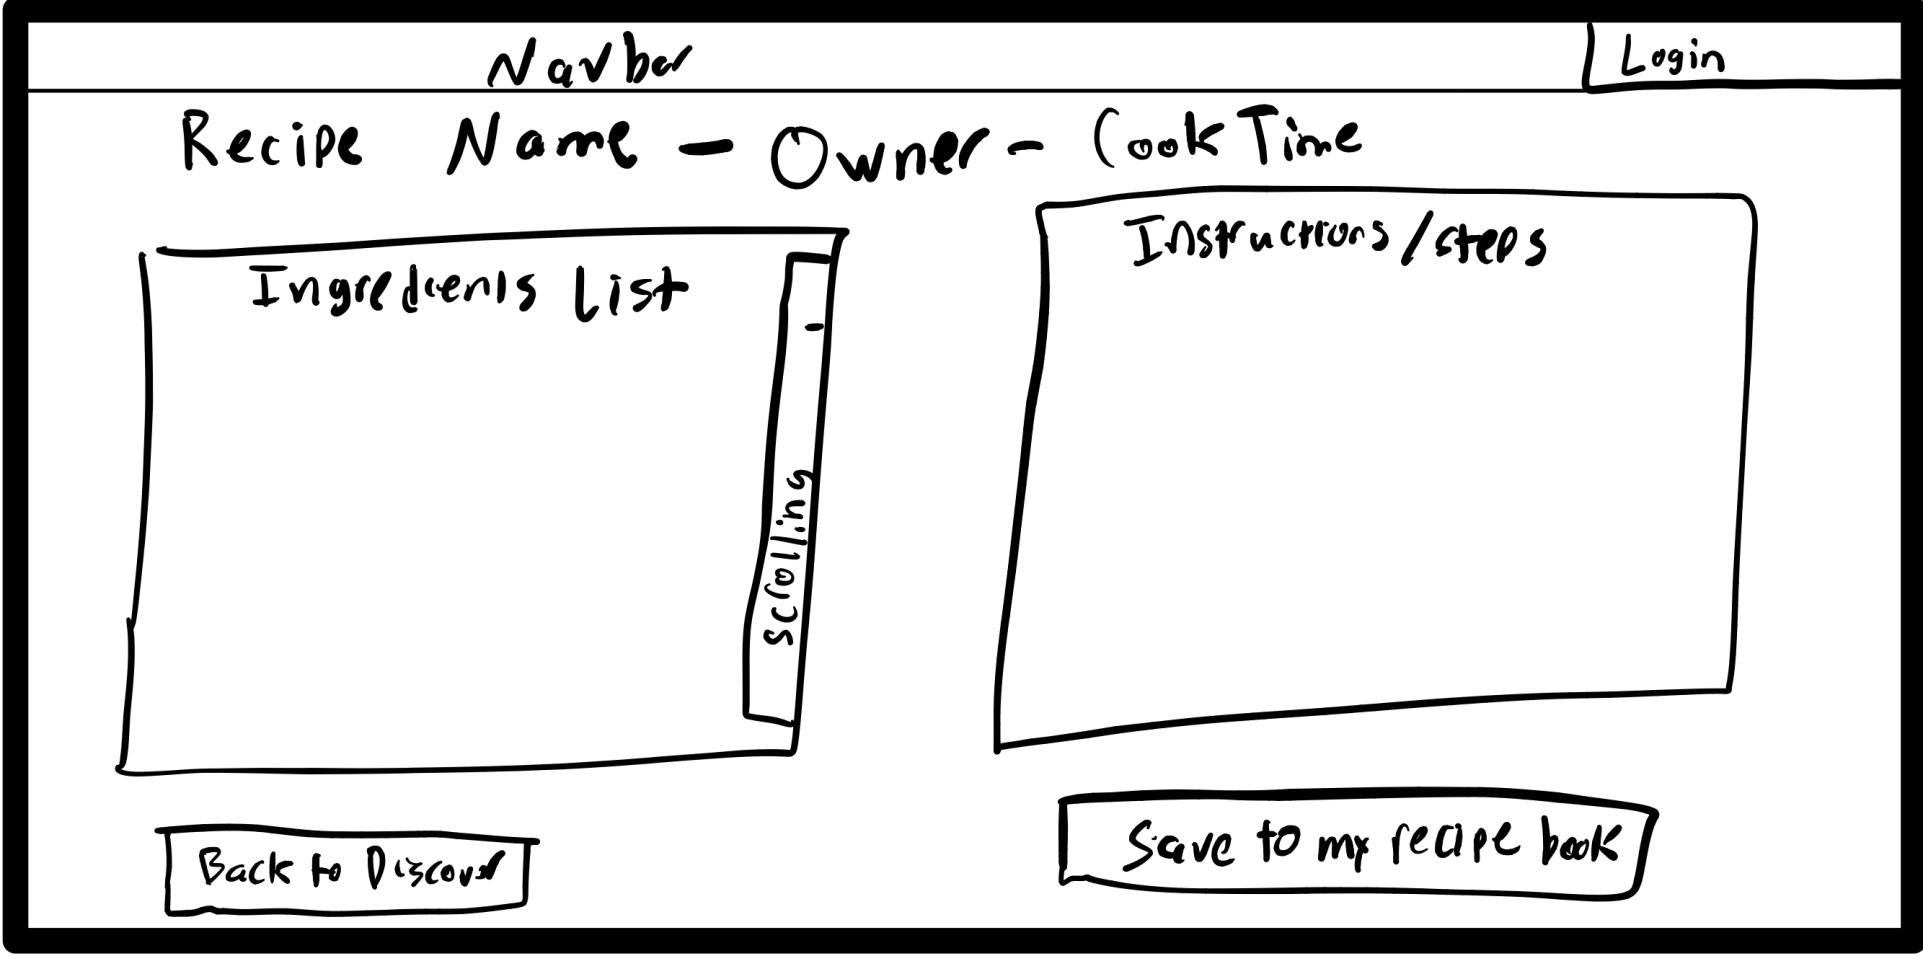 Navbar
Login
Recipe Name - Owner - Cook Time
Ingredients List
Instructions/steps
scrolling
Back to Discover
Save to my recipe book